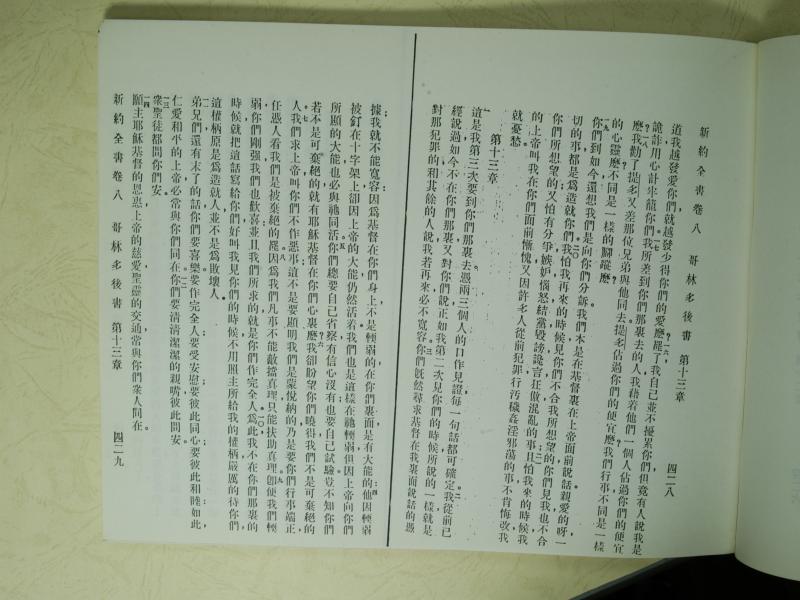 新約全書卷八　哥林多後書　第十三章　四二八
道我越發愛你們就越發少得你們的愛麽罷了我自己並不擾累你們但竟有人說我是
詭詐用心計牢籠你們我所差到你們那裏去的人我藉着他們一個人佔過你們的便宜
麽我勸了提多又差那位兄弟與他同去提多佔過你們的便宜麽我們行事不同是一樣
的心靈麽不同是一樣的脚蹤麽
你們到如今還想我們是向你們分訴我們本是在基督裏在上帝面前說話親愛的呀一
切的事都是爲造就你們我怕我再來的時候見你們不合我所想望的你們見我也不合
你們所想望的又怕有分爭嫉妒惱怒結黨毀謗讒言狂傲混亂的事且怕我來的時候我
的上帝叫我在你們面前慚愧又因許多人從前犯罪行汚穢姦淫邪蕩的事不肯悔改我
就憂愁
第十三章
一這是我第三次要到你們那裏去憑兩三個人的口作見證每一句話都可確定我從前已
經說過如今不在你們那裏又對你們說正如我第二次見你們的時候所說的一樣就是
對那犯罪的和其餘的人說我若再來必不寬容你們旣然尋求基督在我裏面說話的憑
據我就不能寬容因爲基督在你們身上不是輭弱的在你們裏面是有大能的他因輭弱
被釘在十字架上卻因上帝的大能仍然活着我們也是這樣在祂輭弱但因上帝向你們
所顯的大能也必與祂同活你們總要自己省察有信心沒有也要自己試驗豈不知你們
若不是可棄絕的就有耶穌基督在你們心裏麽我卻盼望你們曉得我們不是可棄絕的
人我們求上帝叫你們不作惡事這不是要顯明我們是蒙悅納的乃是要你們行事端正
任憑人看我們是被棄絕的罷因爲我們凡事不能敵擋眞理只能扶助眞理卽使我們輭
弱你們剛强我們也歡喜並且我們所求的就是你們作完全人爲此我不在你們那裏的
時候就把這話寫給你們好叫我見你們的時候不用照主所給我的權柄嚴厲的待你們
這權柄原是爲造就人並不是爲敗壞人
弟兄們還有末了的話你們要喜樂要作完全人要受安慰要彼此同心要彼此和睦如此
仁愛和平的上帝必常與你們同在你們要淸淸潔潔的親嘴彼此問安
衆聖徒都問你們安
願主耶穌基督的恩惠上帝的慈愛聖靈的交通常與你們衆人同在
新約全書卷八　哥林多後書　第十三章　四二九